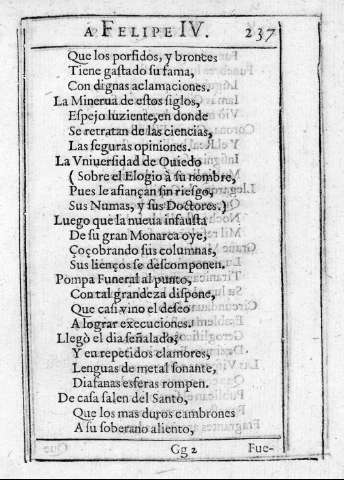 A FELIPE IV. 237
Que los porfidos, y bronces
Tiene gastado su fama,
Con dignas aclamaciones.
La Minerua de estos siglos,
Espejo luziente, en donde
Se retratan de las ciencias,
Las seguras opiniones.
La Vniuersidad de Ouiedo
( Sobre el Elogio à su nombre,
Pues le afiançan sin riesgo,
Sus Numas, y sus Doctores.)
Luego que la nueua infausta
De su gran Monarca oye,
Çoçobrando sus columnas,
Sus lienços se descomponen.
Pompa Funeral al punto,
Con tal grandeza dispone,
Que casi vino el deseo
A lograr execuciones.
Llegò el dia señalado,
Y en repetidos clamores,
Lenguas de metal sonante,
Diafanas esferas rompen.
De casa salen del Santo,
Que los mas duros cambrones
A su soberano aliento,
Gg 2 Fue-